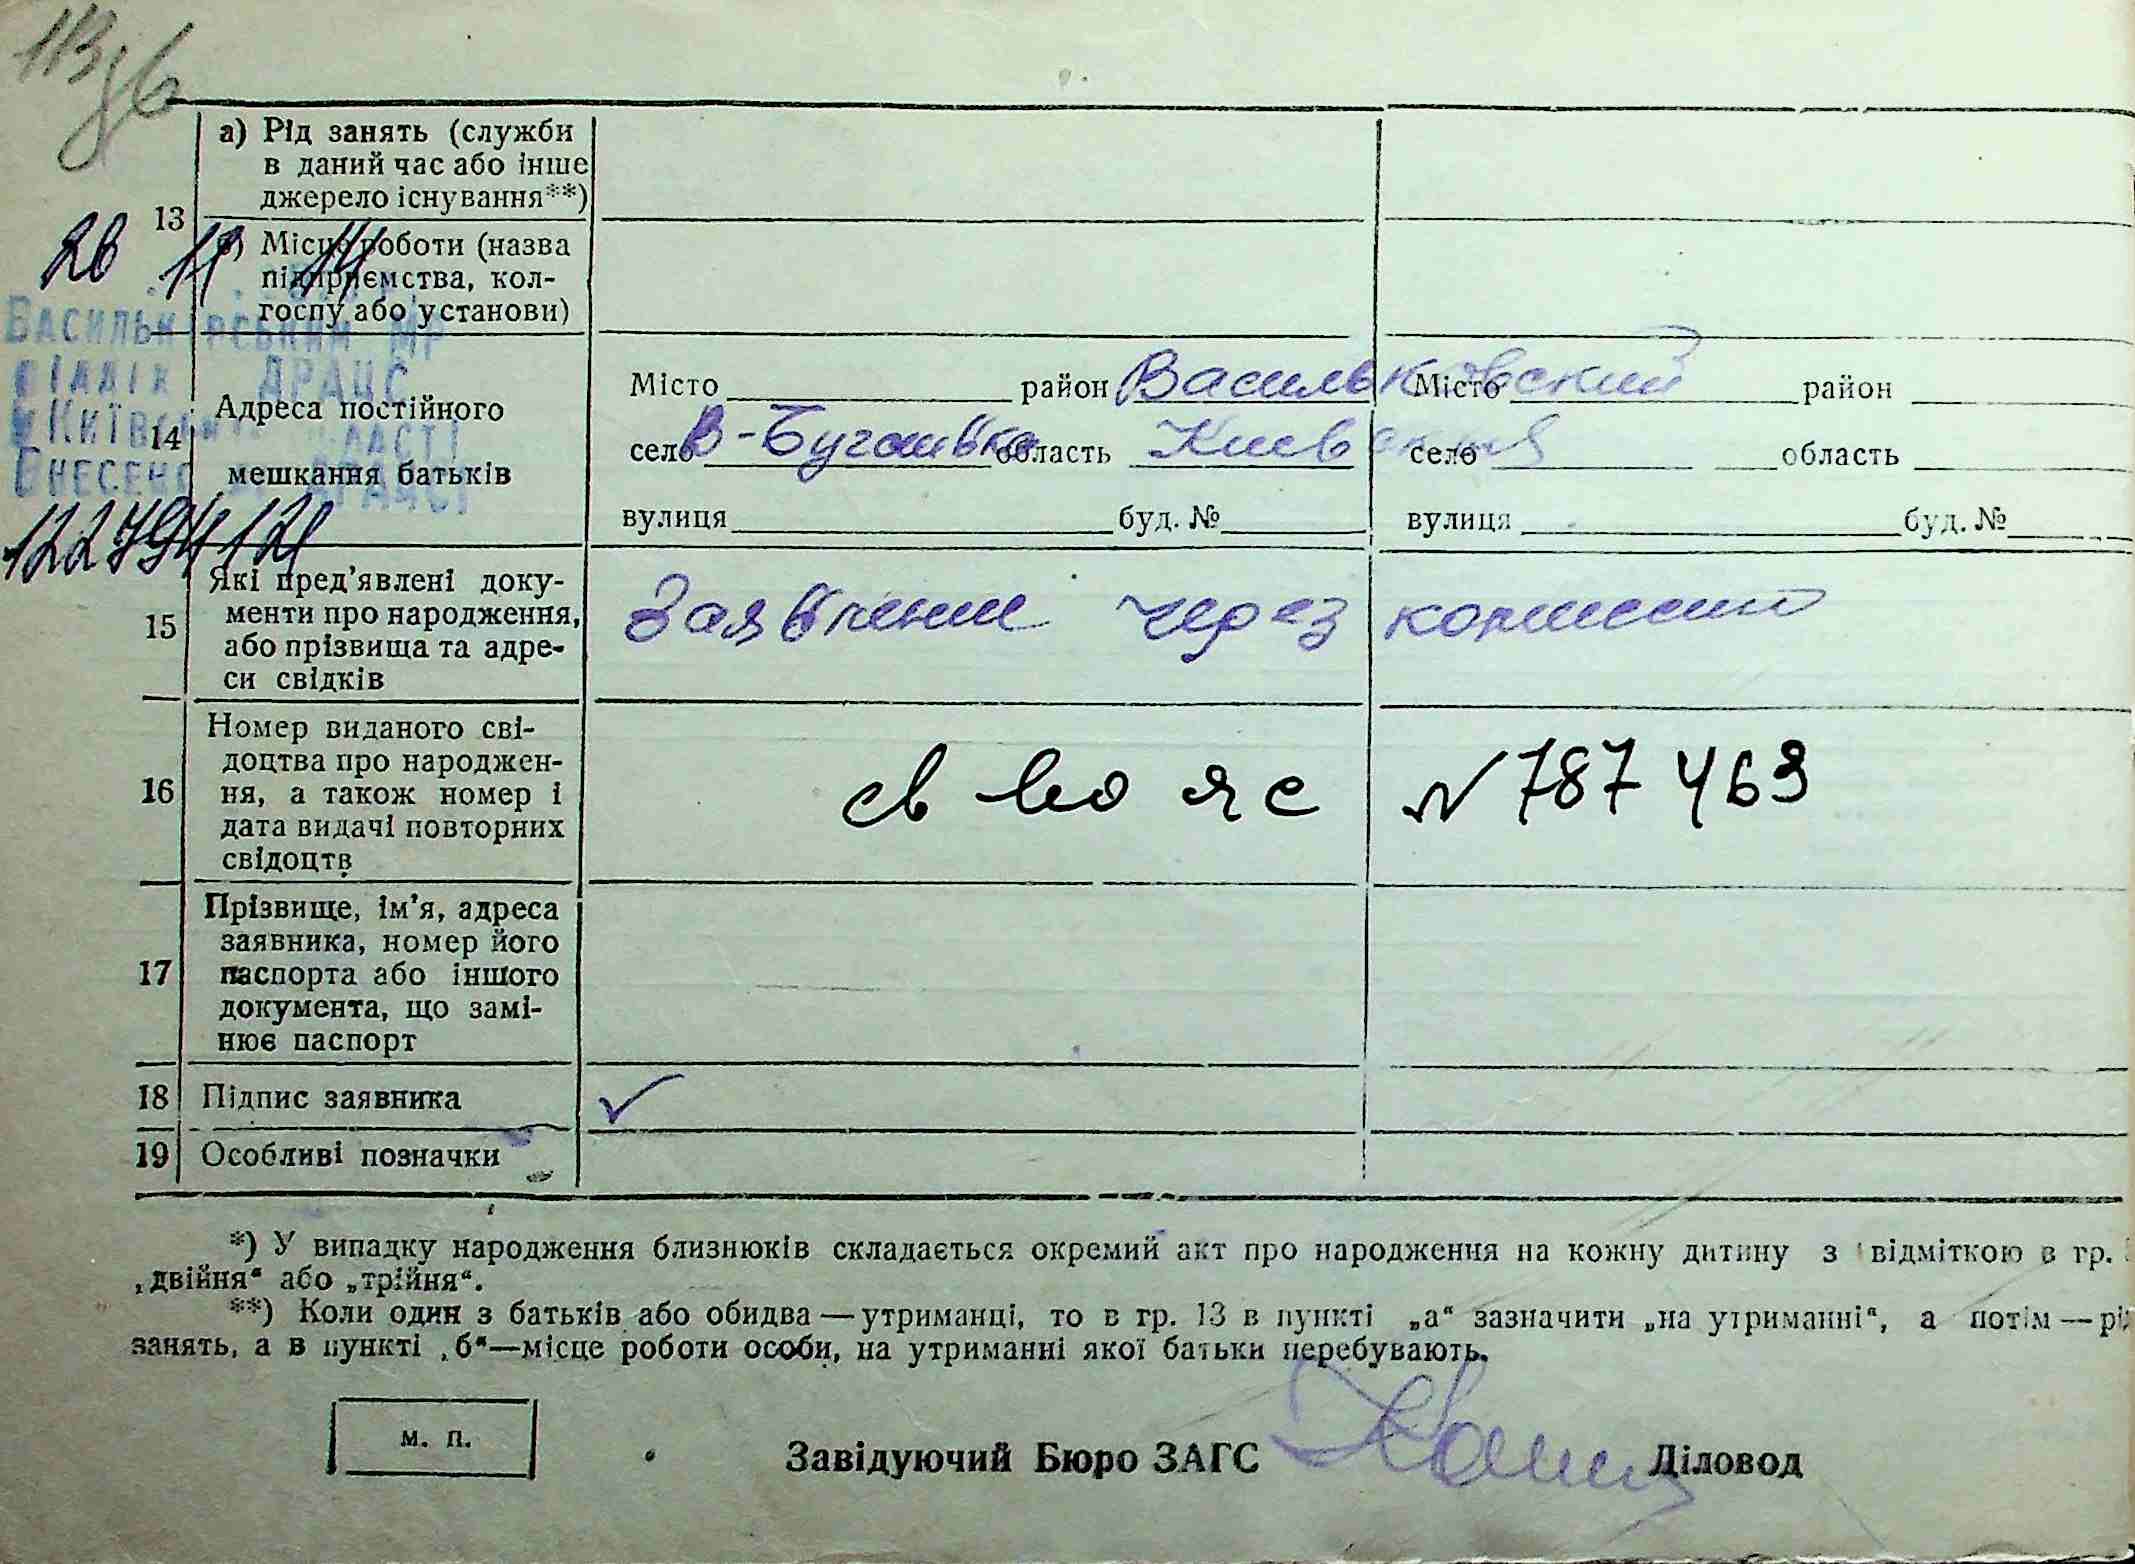 13
а) Рід занять (служби
в даний час або інше
джерело існування**)
20 11 14
Місце роботи (назва
підприємства, кол-
госпу або установи)
ВАСИЛЬКІВСЬКИМ МР
ВІДДІЛ ДРАЦС
ВНЕСЕНО ДРАЦСГ
122794121
14
Адреса постійного
мешкання батьків
Місто район Васильковский
село В-Бугаивка область Киевская
вулиця буд. №
Місто район
село область
вулиця буд. №
15
Які пред’явлені доку-
менти про народження,
або прізвища та адре-
си свідків
Заявление через комиссию
16
Номер виданого сві-
доцтва про народжен-
ня, а також номер і
дата видачі повторних
свідоцтв
св во яс № 787 463
17
Прізвище, ім’я, адреса
заявника, номер його
паспорта або іншого
документа, що замі-
нює паспорт
18 Підпис заявника
19 Особливі позначки
*) У випадку народження близнюків складається окремий акт про народження на кожну дитину з відміткою в гр.
„двійня“ або „трійня“.
**) Коли один з батьків або обидва — утриманці, то в гр. 13 в пункті „а“ зазначити „на утриманні“, а потім — рід
занять, а в пункті „б“—місце роботи особи, на утриманні якої батьки перебувають.
м. п.
Завідуючий Бюро ЗАГС
Діловод